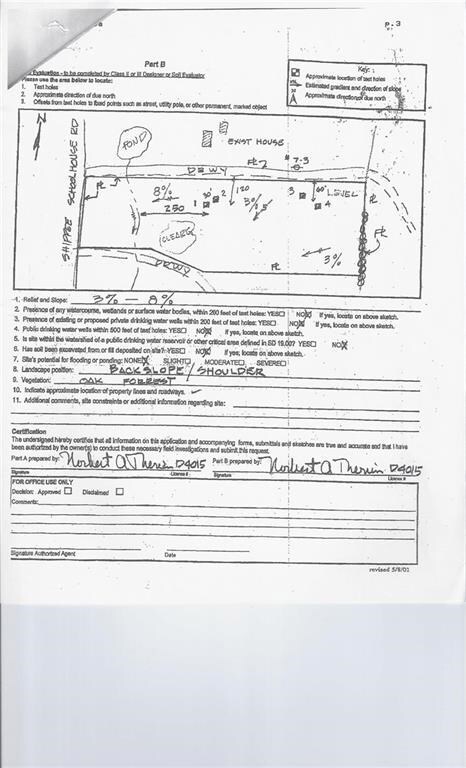 P. 3
Part B
Evaluation - to be completed by Class II or III Designer or Soil Evaluator
Please use the area below to locate:
1. Test holes
2. Approximate direction of due north
3. Offsets from test holes to fixed points such as street, utility pole, or other permanent, marked object
Key:
Approximate location of test holes
Estimated gradient and direction of slope
Approximate direction of due north
N
SHIPPEE SCHOOLHOUSE RD
POND
EXIST HOUSE
DRWY
7-3
8%
250
1
2
120
3%
3
60'
LEVEL
4
CLEARG
DRWY
3%
1. Relief and Slope: 3% - 8%
2. Presence of any watercourse, wetlands or surface water bodies, within 200 feet of test holes: YES NO If yes, locate on above sketch.
3. Presence of existing or proposed private drinking water wells within 200 feet of test holes: YES NO If yes, locate on above sketch.
4. Public drinking water wells within 500 feet of test holes: YES NO If yes, locate on above sketch.
5. Is site within the watershed of a public water reservoir or other critical area defined in SD 19.00? YES NO
6. Has soil been excavated from or fill deposited on site? YES NO If yes, locate on above sketch.
7. Site's potential for flooding or ponding: NONE SLIGHT MODERATE SEVERE
8. Landscape position: BACKSLOPE / SHOULDER
9. Vegetation: OAK FORREST
10. Indicate approximate location of property lines and roadways. ✓
11. Additional comments, site constraints or additional information regarding site:
Certification
The undersigned hereby certifies that all information on this application and accompanying forms, submittals and sketches are true and accurate and that I have
been authorized by the owner(s) to conduct these necessary field investigations and submit this request.
Part A prepared by: Norbert A Therien D4015 Part B prepared by: Norbert A Therien D4015
Signature License # Signature License #
FOR OFFICE USE ONLY
Decision: Approved Disclaimed
Comments:
Signature Authorized Agent Date
revised 5/8/01